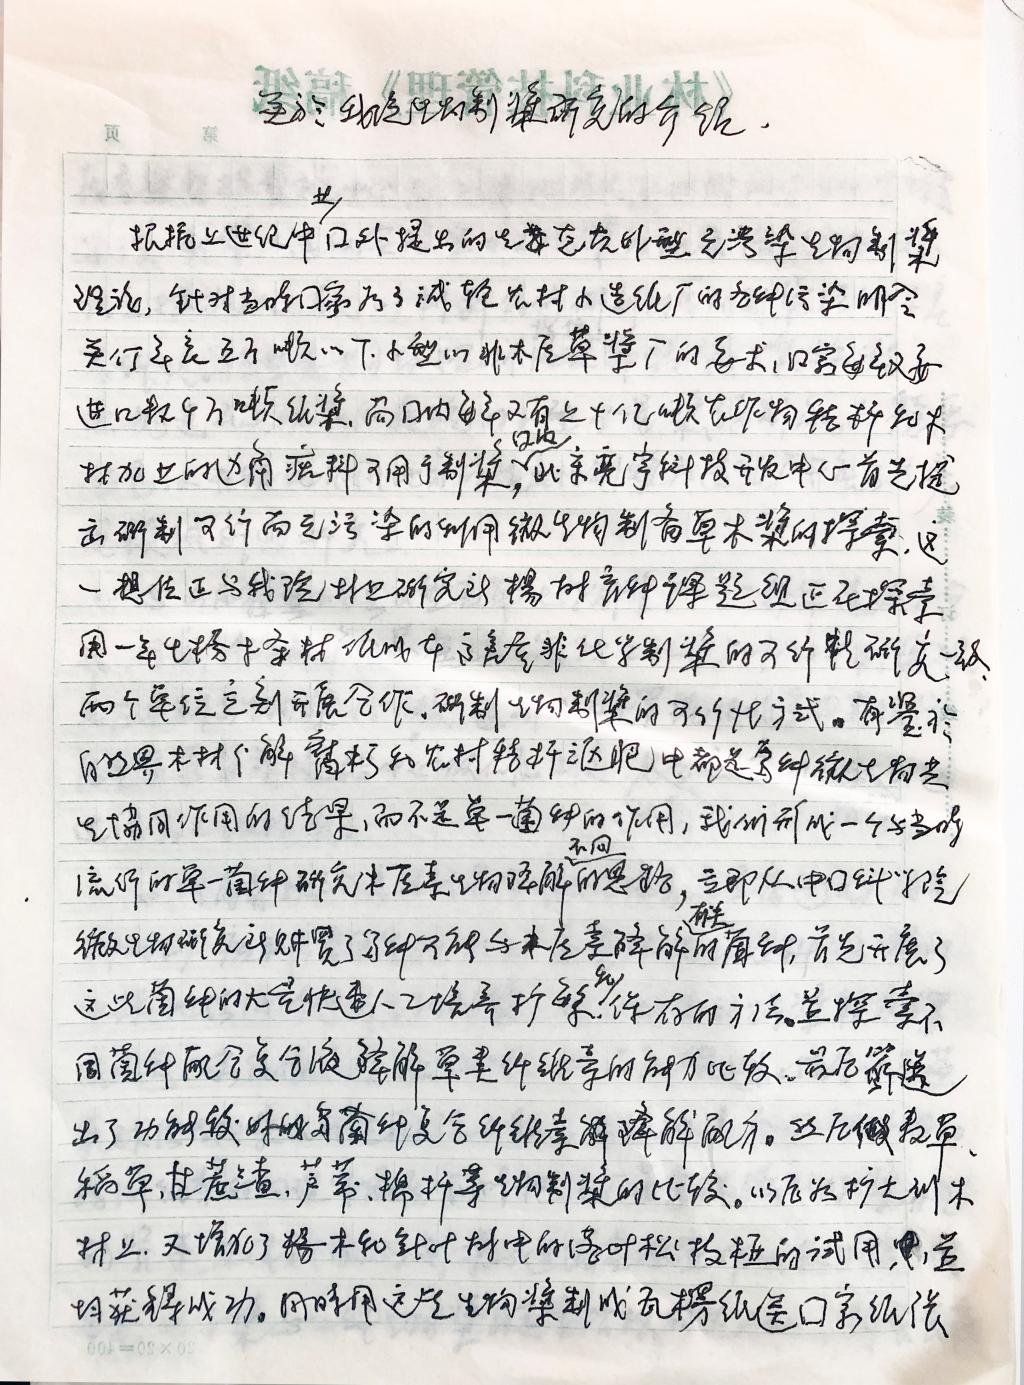 《林业科技管理》稿纸
关于我院生物制浆研究的介绍.
第 页
廿
根据上世纪中 国外提出的生物 无污染生物制浆
理论, 针对当时国家为了减轻农村小造纸厂的各种污染明令
关停年产五万吨以下小型以非木质草浆厂的要求, 国家每年又要
进口数千万吨纸浆. 而国内每年又有上十亿吨农作物秸秆和木
材加工的边角废料可用于制浆, 北京 宇科技开发中心首先提
出研制可行而无污染的利用微生物制备草木浆的探索. 这
一想法正与我院林业研究所杨树育种课题组正在探索
用一年生杨木条材 非化学制浆的可行性研究一致.
两个单位立刻开展合作. 研制生物制浆的可行化方式。有鉴于
自然界木材分解腐朽和农村秸秆沤肥中都是多种微生物共
生协同作用的结果, 而不是单一菌种的作用, 我们形成一个与当时
不同
流行的单一菌种研究木质素生物降解的思路, 立即从中国科学院
有关
微生物研究所购买了多种可能与木质素降解的菌种, 首先开展了
和
这些菌种的大量快速人工培养扩繁 保存的方法。并探索不
同菌种配合复合液降解草类纤维素的能力比较. 最后筛选
出了功能较好的多菌种复合纤维素降解配方。然后做麦草、
稻草, 甘蔗渣, 芦苇, 棉杆等生物制浆的比较。以后为扩大到木
材上. 又增加了杨木和针叶材中的落叶松枝桠的试用, 并
均获得成功。同时用这些生物浆制成瓦楞纸送国家纸张
20×20=400